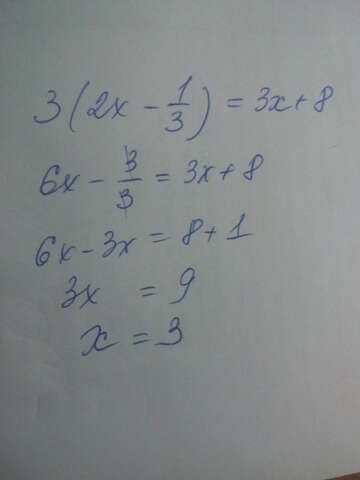 3(2x - 1/3) = 3x+8
6x - 3/3 = 3x+8
6x - 3x = 8+1
3x = 9
x = 3